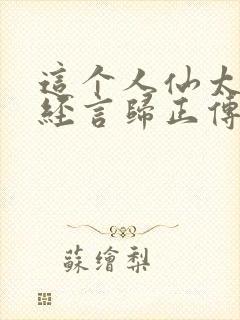 這个人仙太
經言歸正傳
蘇繪梨